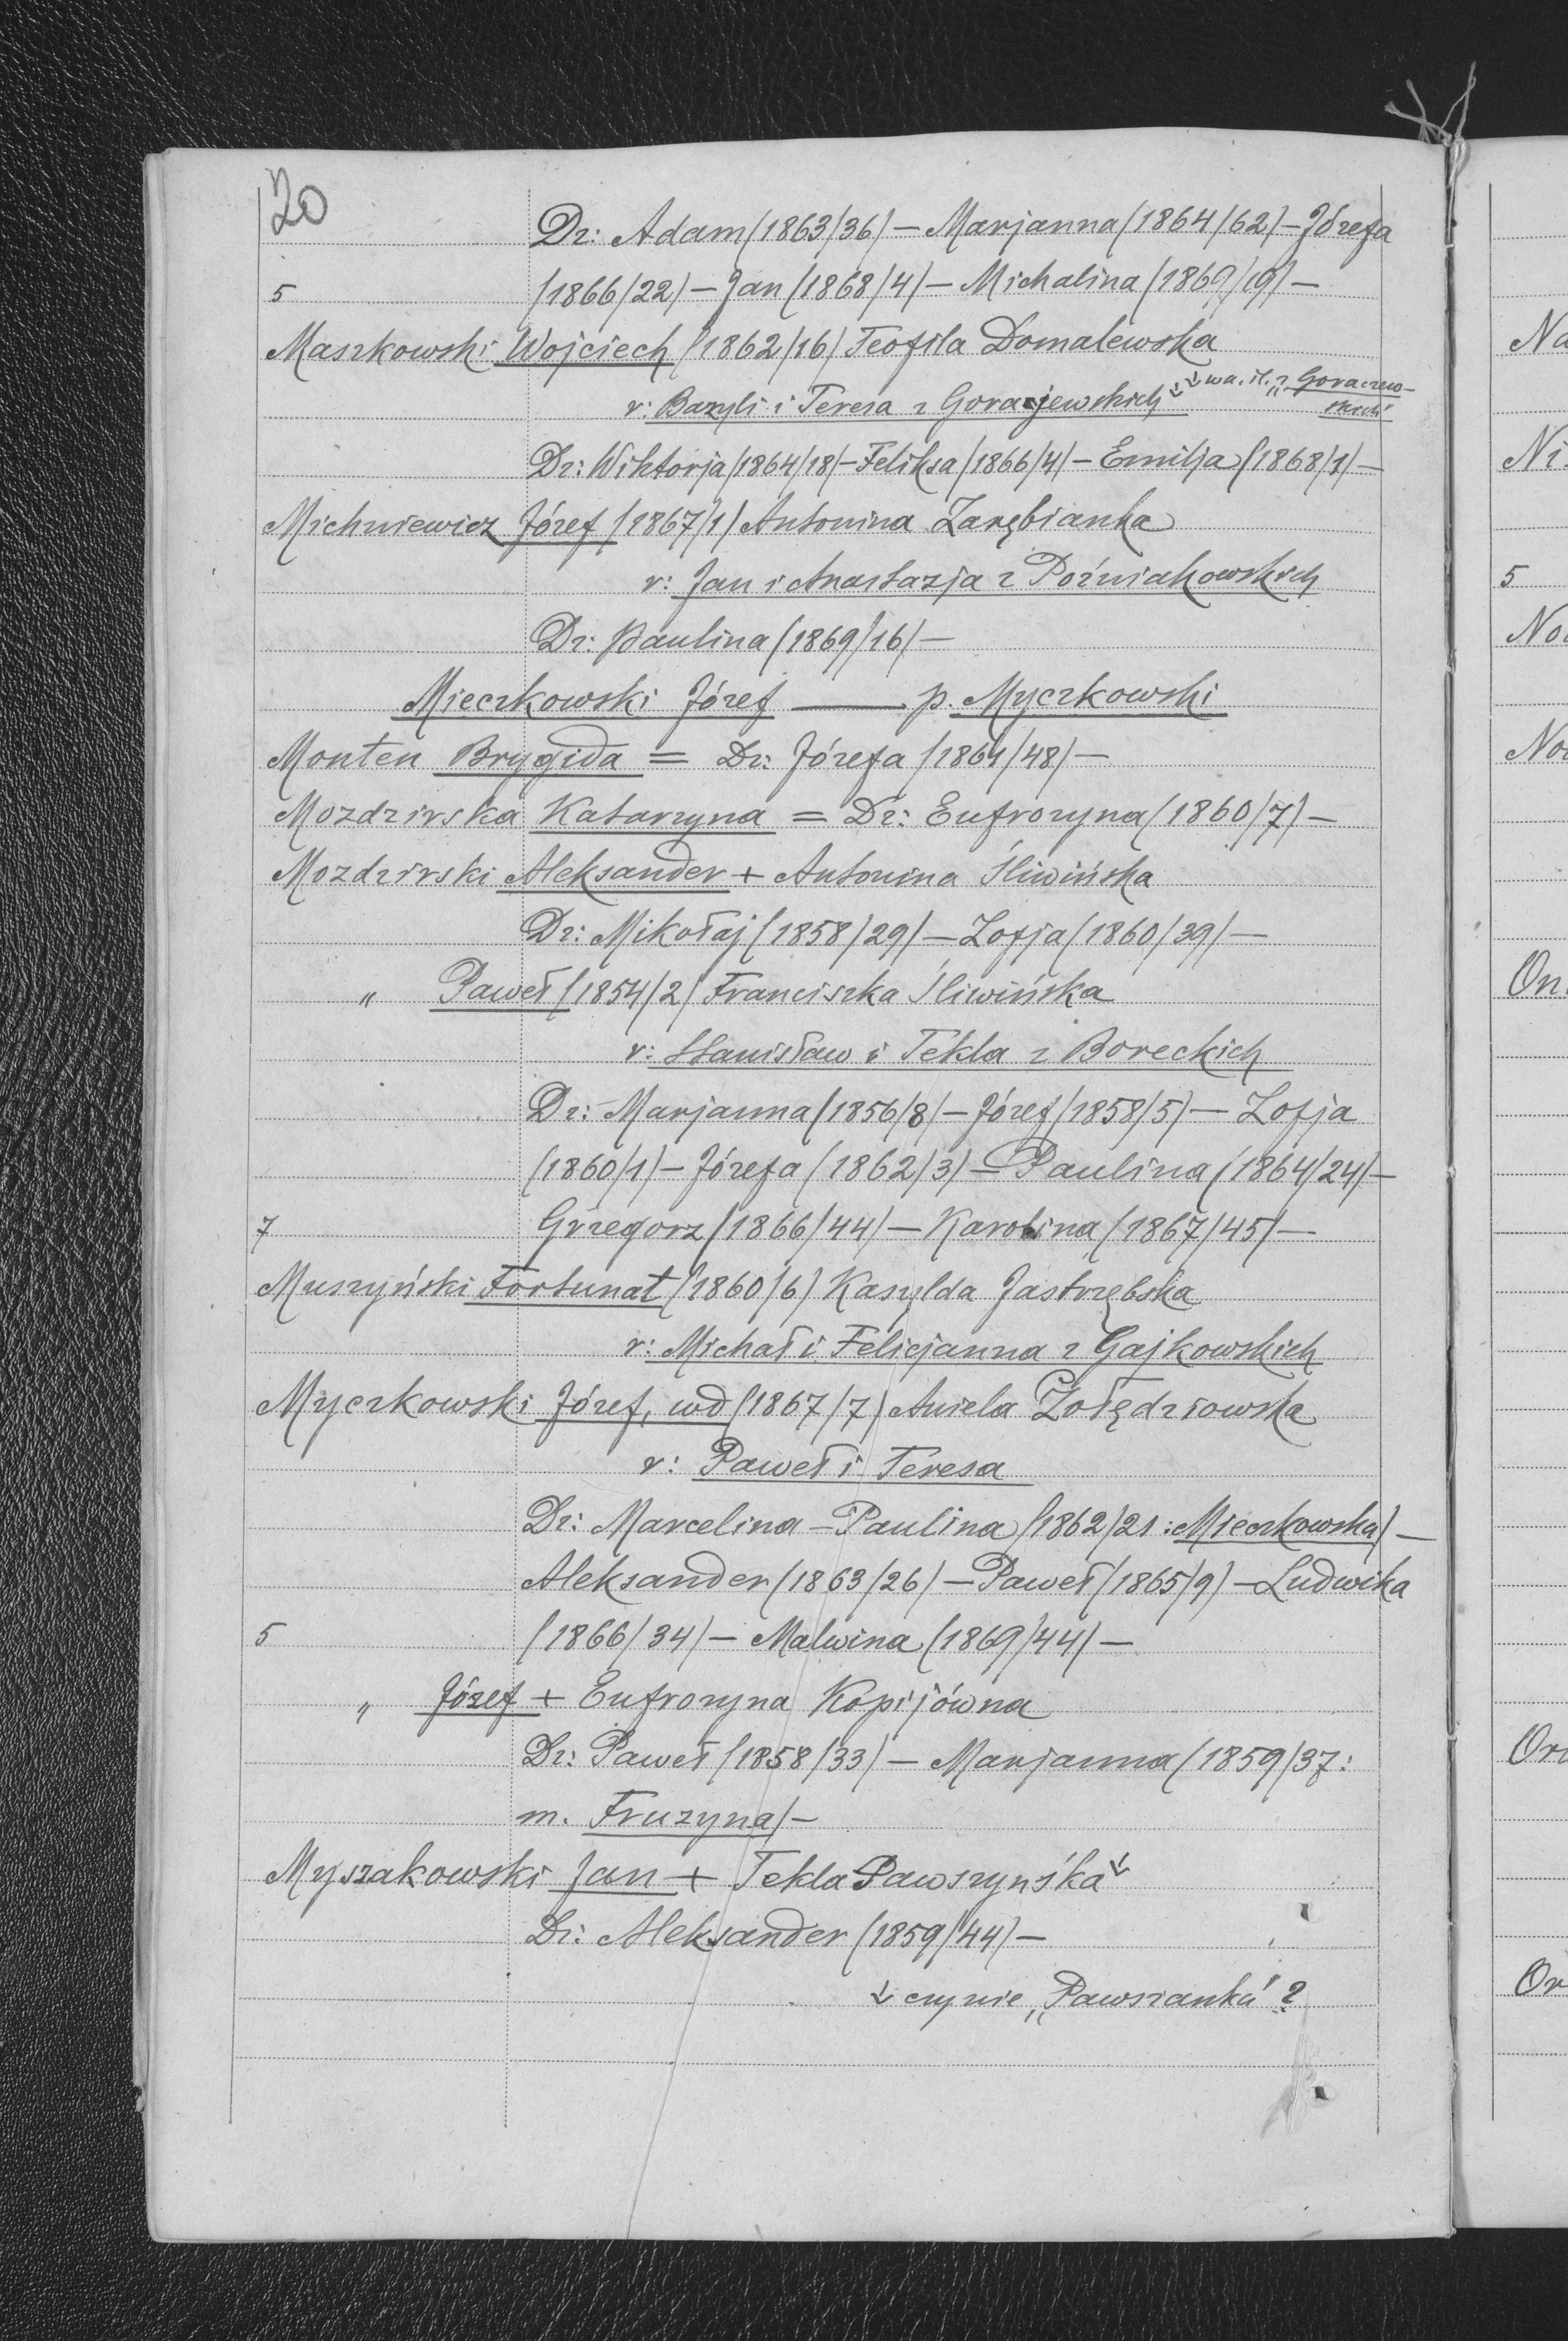 20
Dz: Adam (1863/36) — Marjanna (1864/62) — Józefa
5 (1866/22) — Jan (1868/4) — Michalina (1869/19) —
Maszkowski Wojciech (1862/16) Teofila Domalewska
r: Bazyli i Teresa z Gorajewskich ↓ ↓ wa. il. z „Goraczew-
skich"
Dz: Wiktorja (1864/18) — Feliksa (1866/4) — Emilja (1868/1) —
Michniewicz Józef (1867/1) Antonina Zarębianka
r: Jan i Anastazja z Poźniakowskich
Dz: Paulina (1869/16) —
Mieczkowski Józef —— p. Myczkowski
Monten Brygida = Dz: Józefa (1861/48) —
Mozdzirska Katarzyna = Dz: Eufrozyna (1860/7) —
Mozdzirski Aleksander + Antonina Śliwińska
Dz: Mikołaj (1858/29) — Zofja (1860/39) —
„ Paweł (1854/2) Franciszka Śliwińska
r: Stanisław i Tekla z Boreckich
Dz: Marjanna (1856/8) — Józef (1858/5) — Zofja
(1860/1) — Józefa (1862/3) — Paulina (1864/24) —
7 Grzegorz (1866/44) — Karolina (1867/45) —
Muszyński Fortunat (1860/6) Kasylda Jastrzębska
r: Michał i Felicjanna z Gajkowskich
Myczkowski Józef, wd (1867/7) Aniela Żołędziowska
r: Paweł i Teresa
Dz: Marcelina-Paulina (1862/21: Mieczkowska) —
Aleksander (1863/26) — Paweł (1865/9) — Ludwika
5 (1866/34) — Malwina (1869/44) —
„ Józef + Eufrozyna Kopijówna
Dz: Paweł (1858/33) — Marjanna (1859/37:
m. Fruzyna) —
Myszakowski Jan + Tekla Pawszyńska ↓
Dz: Aleksander (1859/44) —
↓ czy nie „Pawszanka"?
Na
Ni
5
No
No
On
Or
Or